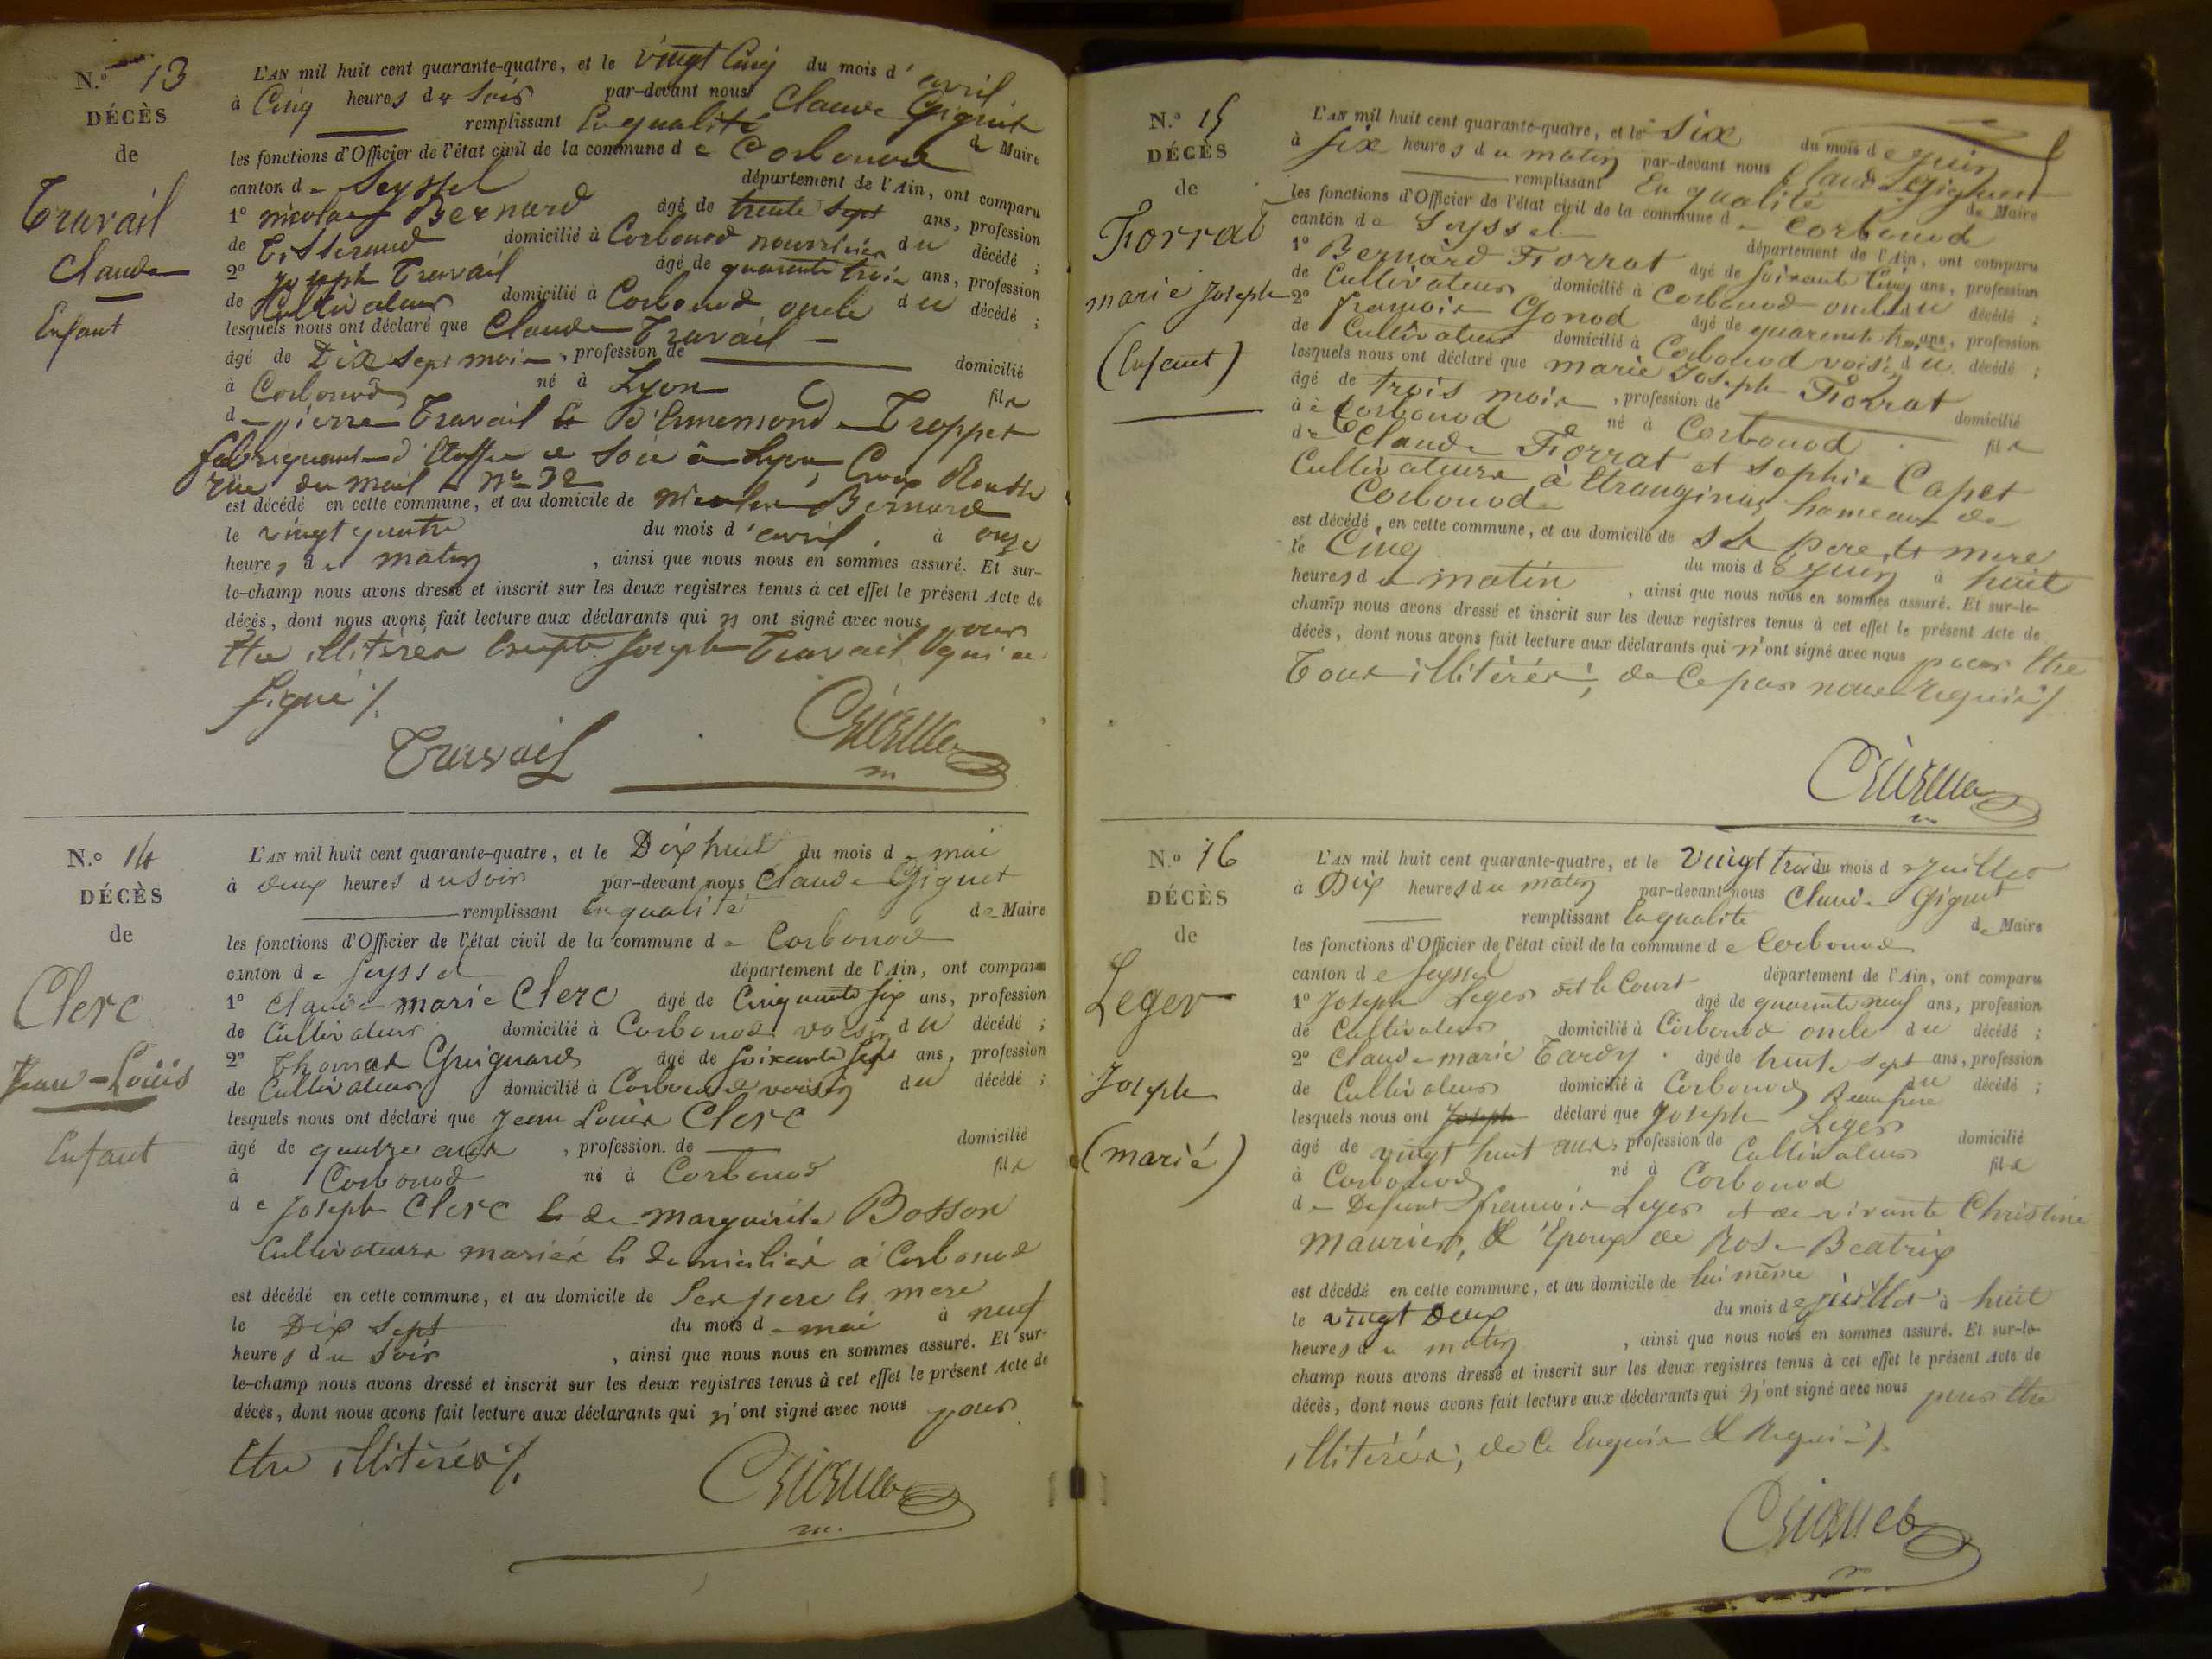 N.° 13
DÉCÈS
de
Travail
Claude
Enfant
L'AN mil huit cent quarante-quatre, et le vingt Cinq du mois d'avril
à Cinq heures du Soir par-devant nous Claude Giguet
remplissant En qualité de Maire
les fonctions d'Officier de l'état civil de la commune de Corbonod
canton de Seyssel département de l'Ain, ont comparu
1° nicolas Bernard âgé de trente Sept ans, profession
de Tisserand domicilié à Corbonod nourricier du décédé ;
2° Joseph Travail âgé de quarante trois ans, profession
de Cultivateur domicilié à Corbonod oncle du décédé ;
lesquels nous ont déclaré que Claude Travail
âgé de Dix Sept mois, profession de domicilié
à Corbonod né à Lyon fils
de pierre Travail & d'Ennemonde Troppet
fabriquant d'Etoffe de Soie à Lyon, Croix Rousse
rue du mail n° 32
est décédé en cette commune, et au domicile de Nicolas Bernard
le vingt quatre du mois d'avril à onze
heures du matin, ainsi que nous nous en sommes assuré. Et sur-
le-champ nous avons dressé et inscrit sur les deux registres tenus à cet effet le présent Acte de
décès, dont nous avons fait lecture aux déclarants qui n ont signé avec nous pour
être illitérés Excepté Joseph Travail qui a
Signé ./.
Travail
Giguet
N.° 14
DÉCÈS
de
Clerc
Jean-Louis
Enfant
L'AN mil huit cent quarante-quatre, et le Dix huit du mois de mai
à deux heures du Soir par-devant nous Claude Giguet
remplissant En qualité de Maire
les fonctions d'Officier de l'état civil de la commune de Corbonod
canton de Seyssel département de l'Ain, ont comparu
1° Claude marie Clerc âgé de Cinquante Six ans, profession
de Cultivateur domicilié à Corbonod voisin du décédé ;
2° Thomas Guignard âgé de Soixante Sept ans, profession
de Cultivateur domicilié à Corbonod voisin du décédé ;
lesquels nous ont déclaré que Jean Louis Clerc
âgé de quatre ans, profession de domicilié
à Corbonod né à Corbonod fils
de Joseph Clerc & de marguerite Bosson
Cultivateurs mariés & domiciliés à Corbonod
est décédé en cette commune, et au domicile de Ses pere & mere
le Dix Sept du mois de mai à neuf
heures du Soir, ainsi que nous nous en sommes assuré. Et sur-
le-champ nous avons dressé et inscrit sur les deux registres tenus à cet effet le présent Acte de
décès, dont nous avons fait lecture aux déclarants qui n'ont signé avec nous pour
être illitérés ./.
Giguet
N.° 15
DÉCÈS
de
Fiorrat
marie Joseph
(Enfant)
L'AN mil huit cent quarante-quatre, et le Six du mois de juin
à Six heures du matin par-devant nous Claude Giguet
remplissant En qualité de Maire
les fonctions d'Officier de l'état civil de la commune de Corbonod
canton de Seyssel département de l'Ain, ont comparu
1° Bernard Fiorrat âgé de Soixante Cinq ans, profession
de Cultivateur domicilié à Corbonod oncle du décédé ;
2° françois Gonod âgé de quarente trois ans, profession
de Cultivateur domicilié à Corbonod voisin du décédé ;
lesquels nous ont déclaré que marie Joseph Fiorrat
âgé de trois mois, profession de domicilié
à Corbonod né à Corbonod fils
de Claude Fiorrat et Sophie Capet
Cultivateurs à Etranginaz hameau de
Corbonod
est décédé en cette commune, et au domicile de Ses pere & mere
le Cinq du mois de juin à huit
heures du matin, ainsi que nous nous en sommes assuré. Et sur-le-
champ nous avons dressé et inscrit sur les deux registres tenus à cet effet le présent Acte de
décès, dont nous avons fait lecture aux déclarants qui n'ont signé avec nous pour être
Tous illitérés, de Ce par nous requis ./.
Giguet
N.° 16
DÉCÈS
de
Leger
Joseph
(marié)
L'AN mil huit cent quarante-quatre, et le Vingt trois du mois de juillet
à Dix heures du matin par-devant nous Claude Giguet
remplissant En qualité de Maire
les fonctions d'Officier de l'état civil de la commune de Corbonod
canton de Seyssel département de l'Ain, ont comparu
1° Joseph Leger dit le Court âgé de quarante neuf ans, profession
de Cultivateur domicilié à Corbonod oncle du décédé ;
2° Claude marie Tardy âgé de trente Sept ans, profession
de Cultivateur domicilié à Corbonod Beaufrere du décédé ;
lesquels nous ont Joseph déclaré que Joseph Leger
âgé de vingt huit ans, profession de Cultivateur domicilié
à Corbonod né à Corbonod fils
de Defunt françois Leger et de vivante Christine
Maurier, & Epoux de Rose Beatrix
est décédé en cette commune, et au domicile de lui même
le vingt Deux du mois de juillet à huit
heures du matin, ainsi que nous nous en sommes assuré. Et sur-le-
champ nous avons dressé et inscrit sur les deux registres tenus à cet effet le présent Acte de
décès, dont nous avons fait lecture aux déclarants qui n'ont signé avec nous pour être
illitérés, de Ce Enquis & Requis ./.
Giguet